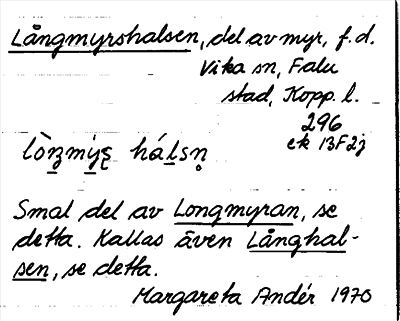 Långmyrshalsen, del av myr, f.d.
Vika sn, Falu
stad, Kopp. l.
296
ek 13F2j
lòn̠zmý̠s̨ há̠lsn̥
Smal del av Longmyran, se
detta. Kallas även Långhal-
sen, se detta.
Margareta Andér 1970